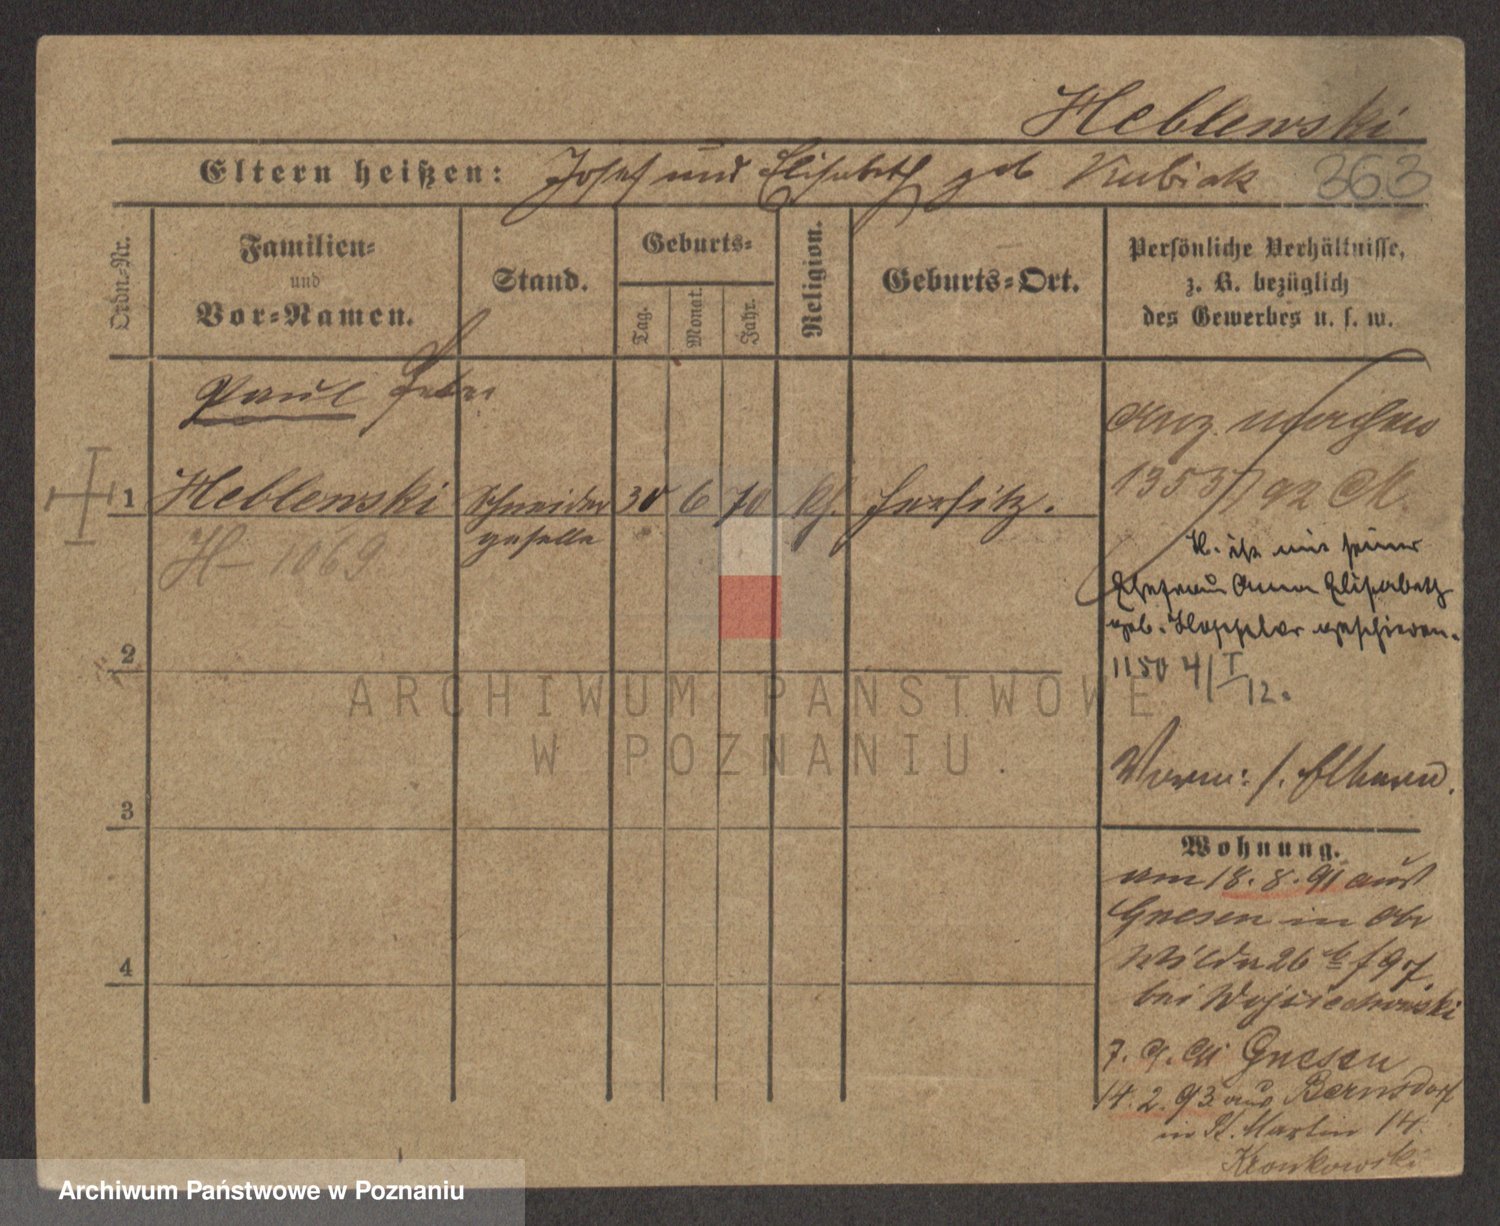 Heblewski
Eltern heißen: Josef und Elisabeth geb Kubiak 363
Ordn.-Nr.
Familien-
und
Vor-Namen.
Stand.
Geburts-
Tag.
Monat.
Jahr.
Religion.
Geburts-Ort.
Persönliche Verhältnisse,
z. B. bezüglich
des Gewerbes u. s. w.
Paul
1 Heblewski Schneider 30 6 70 kh. Jersitz.
geselle
H-1069
1353/92
H. ist mit seiner
Ehefrau Anna Elisabeth
geb. geschieden.
1150 4/I 12.
2
3
4
Wohnung.
am 18. 8. 91 aus
Gnesen in Ob
Wilda 26
bei Wojciechowski
7. 9. 91 Gnesen
14. 2. 93 aus Bernsdorf
in St. Martin 14.
Kronkowski
ARCHIWUM PAŃSTWOWE
W POZNANIU.
Archiwum Państwowe w Poznaniu